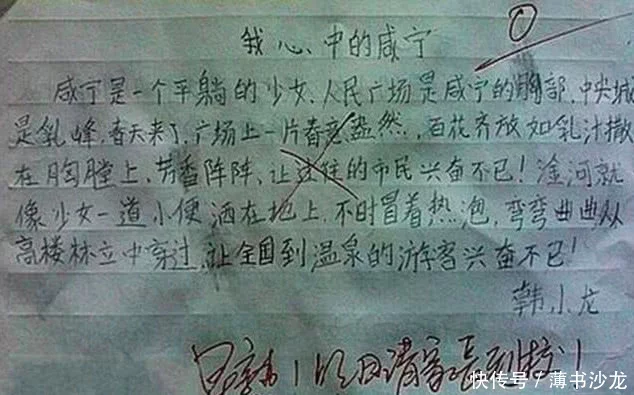 0
我心中的咸宁
咸宁是一个平躺的少女、人民广场是咸宁的胸部,中央城
是乳峰,春天来了,广场上一片春意盎然,百花齐放如乳汁撒
在胸膛上,芳香阵阵、让过往的市民兴奋不已!淦河就
像少女一道小便洒在地上,不时冒着热泡,弯弯曲曲从
高楼林立中穿过,让全国到温泉的游客兴奋不已!
韩小龙
明日请家长到校!
快传号/薄书沙龙